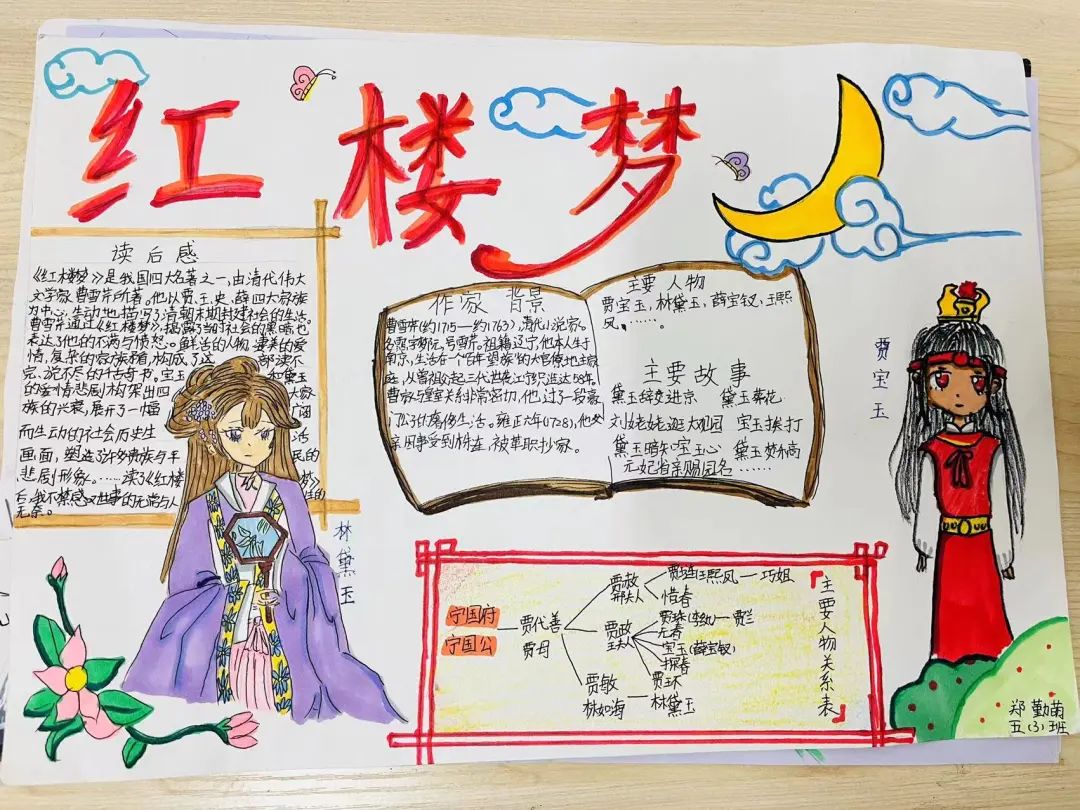 红楼梦
读后感
《红楼梦》是我国四大名著之一,由清代伟大
文学家曹雪芹所著。他以贾、王、史、薛四大家族
为中心,生动地描写了清朝末期封建社会的生活。
曹雪芹通过《红楼梦》,揭露当时社会的黑暗也
表达了他的不满与愤怒。鲜活的人物,凄美的爱
情,复杂的家族矛盾,构成了这 部读不
完、说不尽的千古奇书。宝玉 和黛玉
的爱情悲剧,构架出四 大家
族的兴衰,展开了一幅 广阔
而生动的社会历史生 活
画面,塑造了许多贵族与平 民的
悲剧形象。……读了《红楼 梦》
后,我不禁感叹世事的无常与人
无奈。
林黛玉
作家背景
曹雪芹(约1715—约1763),清代小说家。
名霑,字梦阮,号雪芹。祖籍辽宁,他本人生于
南京,生活在一个百年望族的大官僚地主家
庭,从曾祖父起三代世袭江宁织造达58年
曹家与皇室关系非常密切,他度了一段豪
门公子的奢侈生活。雍正六年(1728),他父
亲因事受到株连,被革职抄家。
主要人物
贾宝玉,林黛玉,薛宝钗,王熙
凤,……。
主要故事
黛玉辞父进京 黛玉葬花
刘姥姥逛大观园 宝玉挨打
黛玉暗知宝玉心 黛玉焚稿
元妃省亲赐园名……
贾宝玉
主要人物关系表
宁国府
宁国公
贾代善
贾母
贾赦
邢夫人
贾琏(王熙凤)—巧姐
惜春
贾政
王夫人
贾珠(李纨)—贾兰
元春
宝玉(薛宝钗)
探春
贾环
贾敏
林如海
林黛玉
郑勤萌
五(3)班